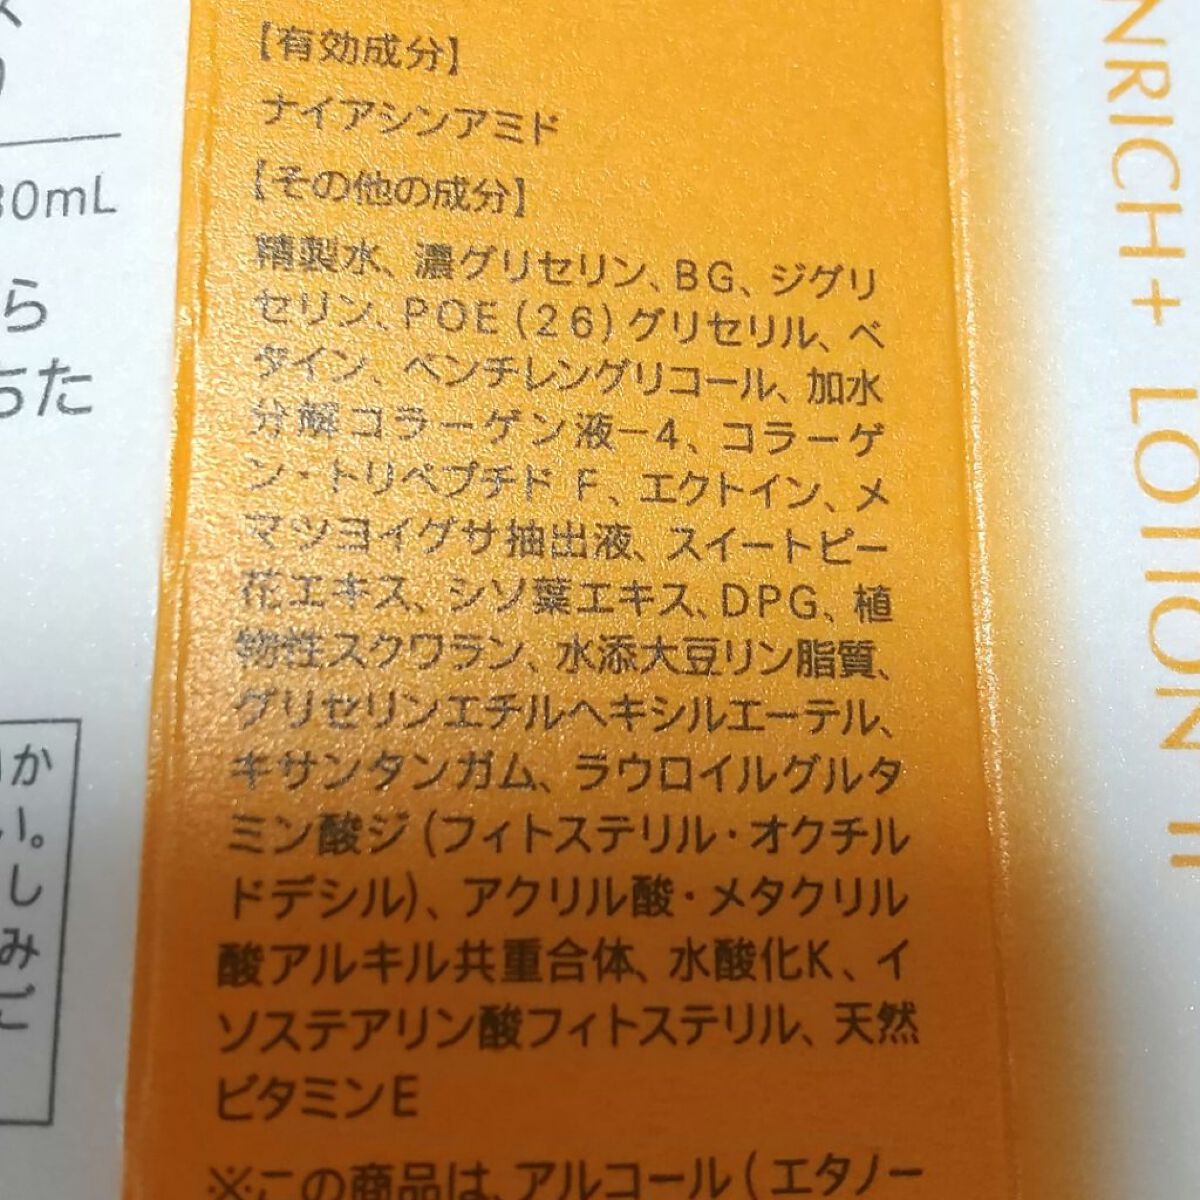 【有効成分】
ナイアシンアミド
【その他の成分】
精製水、濃グリセリン、BG、ジグリ
セリン、POE(26)グリセリル、ベ
タイン、ペンチレングリコール、加水
分解コラーゲン液−4、コラーゲ
ン・トリペプチド F、エクトイン、メ
マツヨイグサ抽出液、スイートピー
花エキス、シソ葉エキス、DPG、植
物性スクワラン、水添大豆リン脂質、
グリセリンエチルヘキシルエーテル、
キサンタンガム、ラウロイルグルタ
ミン酸ジ(フィトステリル・オクチル
ドデシル)、アクリル酸・メタクリル
酸アルキル共重合体、水酸化K、イ
ソステアリン酸フィトステリル、天然
ビタミンE
※この商品は、アルコール(エタノー
30mL
ら
ちた
か
い。
し
み
ご
NRICH+ LOTION II